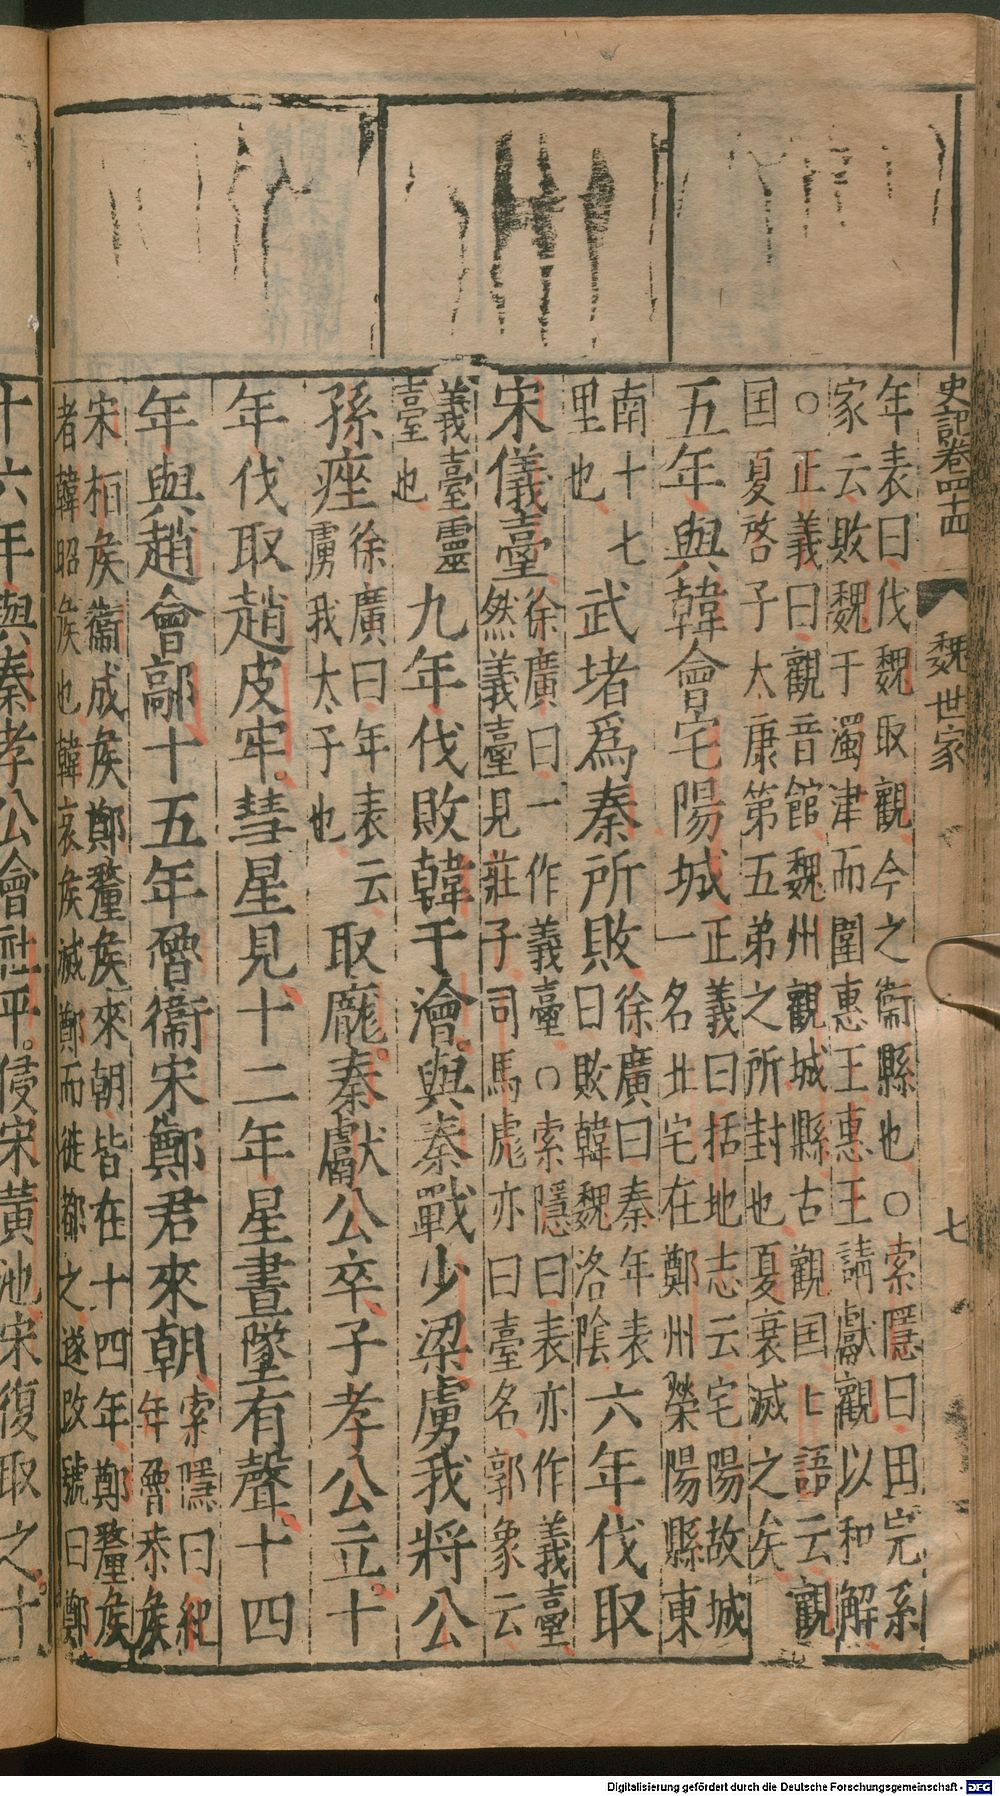 史記卷四十四
魏世家
七
年表曰伐魏取觀今之衞縣也○索隱曰田完系
家云敗魏于濁津而圍惠王惠王請獻觀以和解
○正義曰觀音館魏州觀城縣古觀国上語云觀
国夏啓子太康第五弟之所封也夏衰滅之矣
五年與韓會宅陽城
正義曰括地志云宅陽故城
一名北宅在鄭州榮陽縣東
南十七
里也
武堵爲秦所敗
徐廣曰秦年表
曰敗韓魏洛陰
六年伐取
宋儀臺
徐廣曰一作義臺○索隱曰表亦作義臺
然義臺見莊子司馬彪亦曰臺名郭象云
義臺靈
臺也
九年伐敗韓于澮與秦戰少梁虜我將公
孫痤
徐廣曰年表云
虜我太子也
取龐秦獻公卒子孝公立十
年伐取趙皮牢彗星見十二年星晝墜有聲十四
年與趙會鄗十五年魯衞宋鄭君來朝
索隱曰紀
年魯恭侯
宋桓侯衞成侯鄭釐侯來朝皆在十四年鄭釐侯
者韓昭侯也韓哀侯滅鄭而徙都之遂改號曰鄭
十六年與秦孝公會社平侵宋黃池宋復取之十
Digitalisierung gefördert durch die Deutsche Forschungsgemeinschaft - DFG